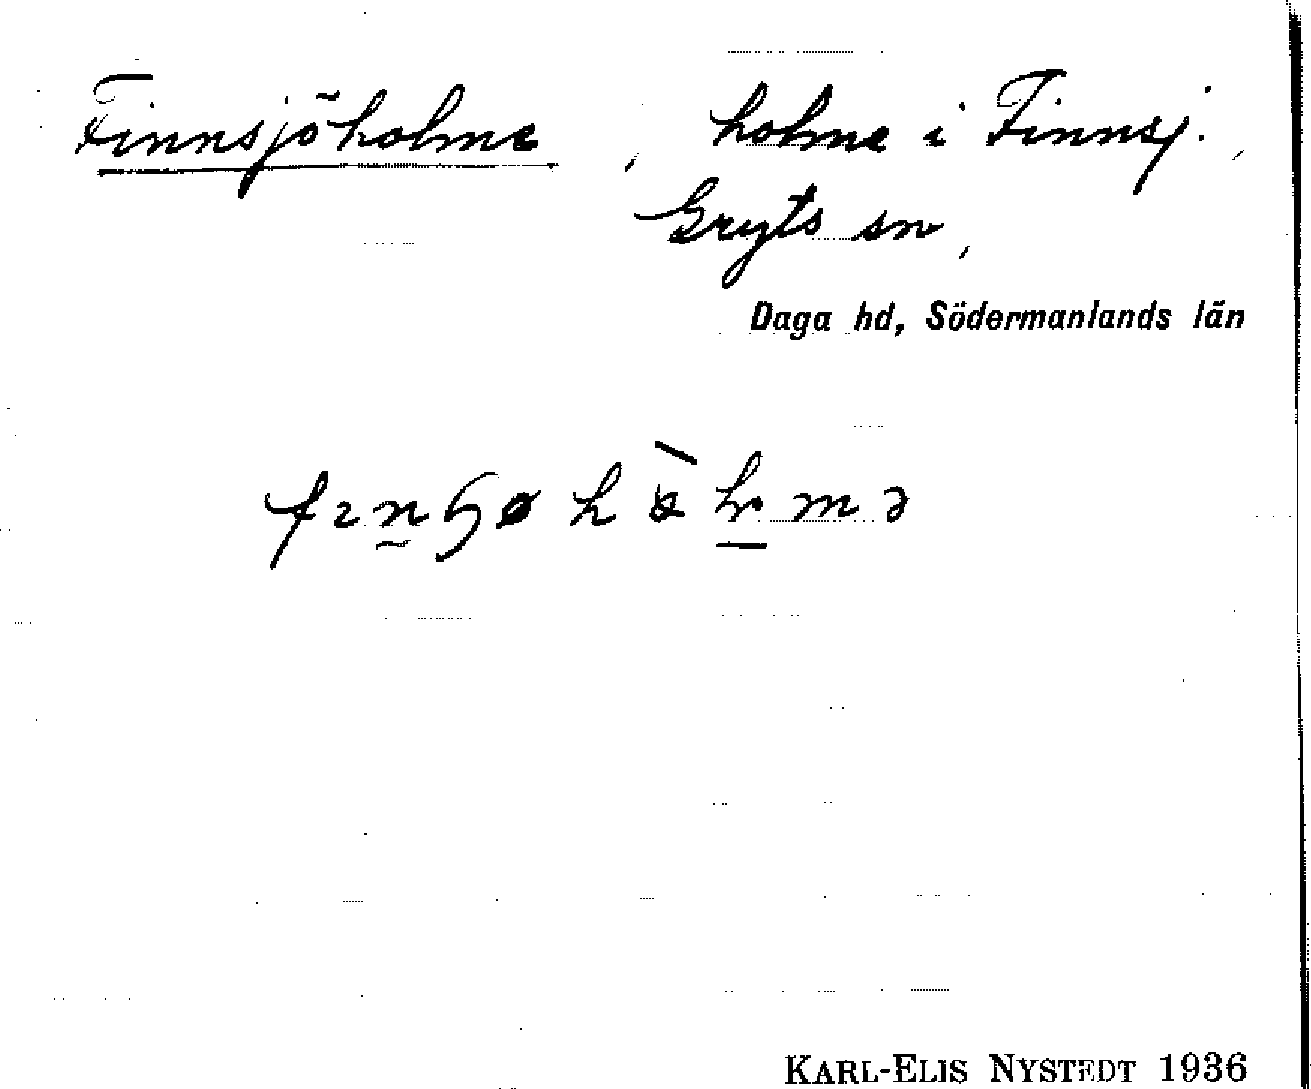 Finnsjöholme, holme i Finnsj.,
Gryts sn,
Daga hd, Södermanlands län
KARL-ELIS NYSTEDT 1936